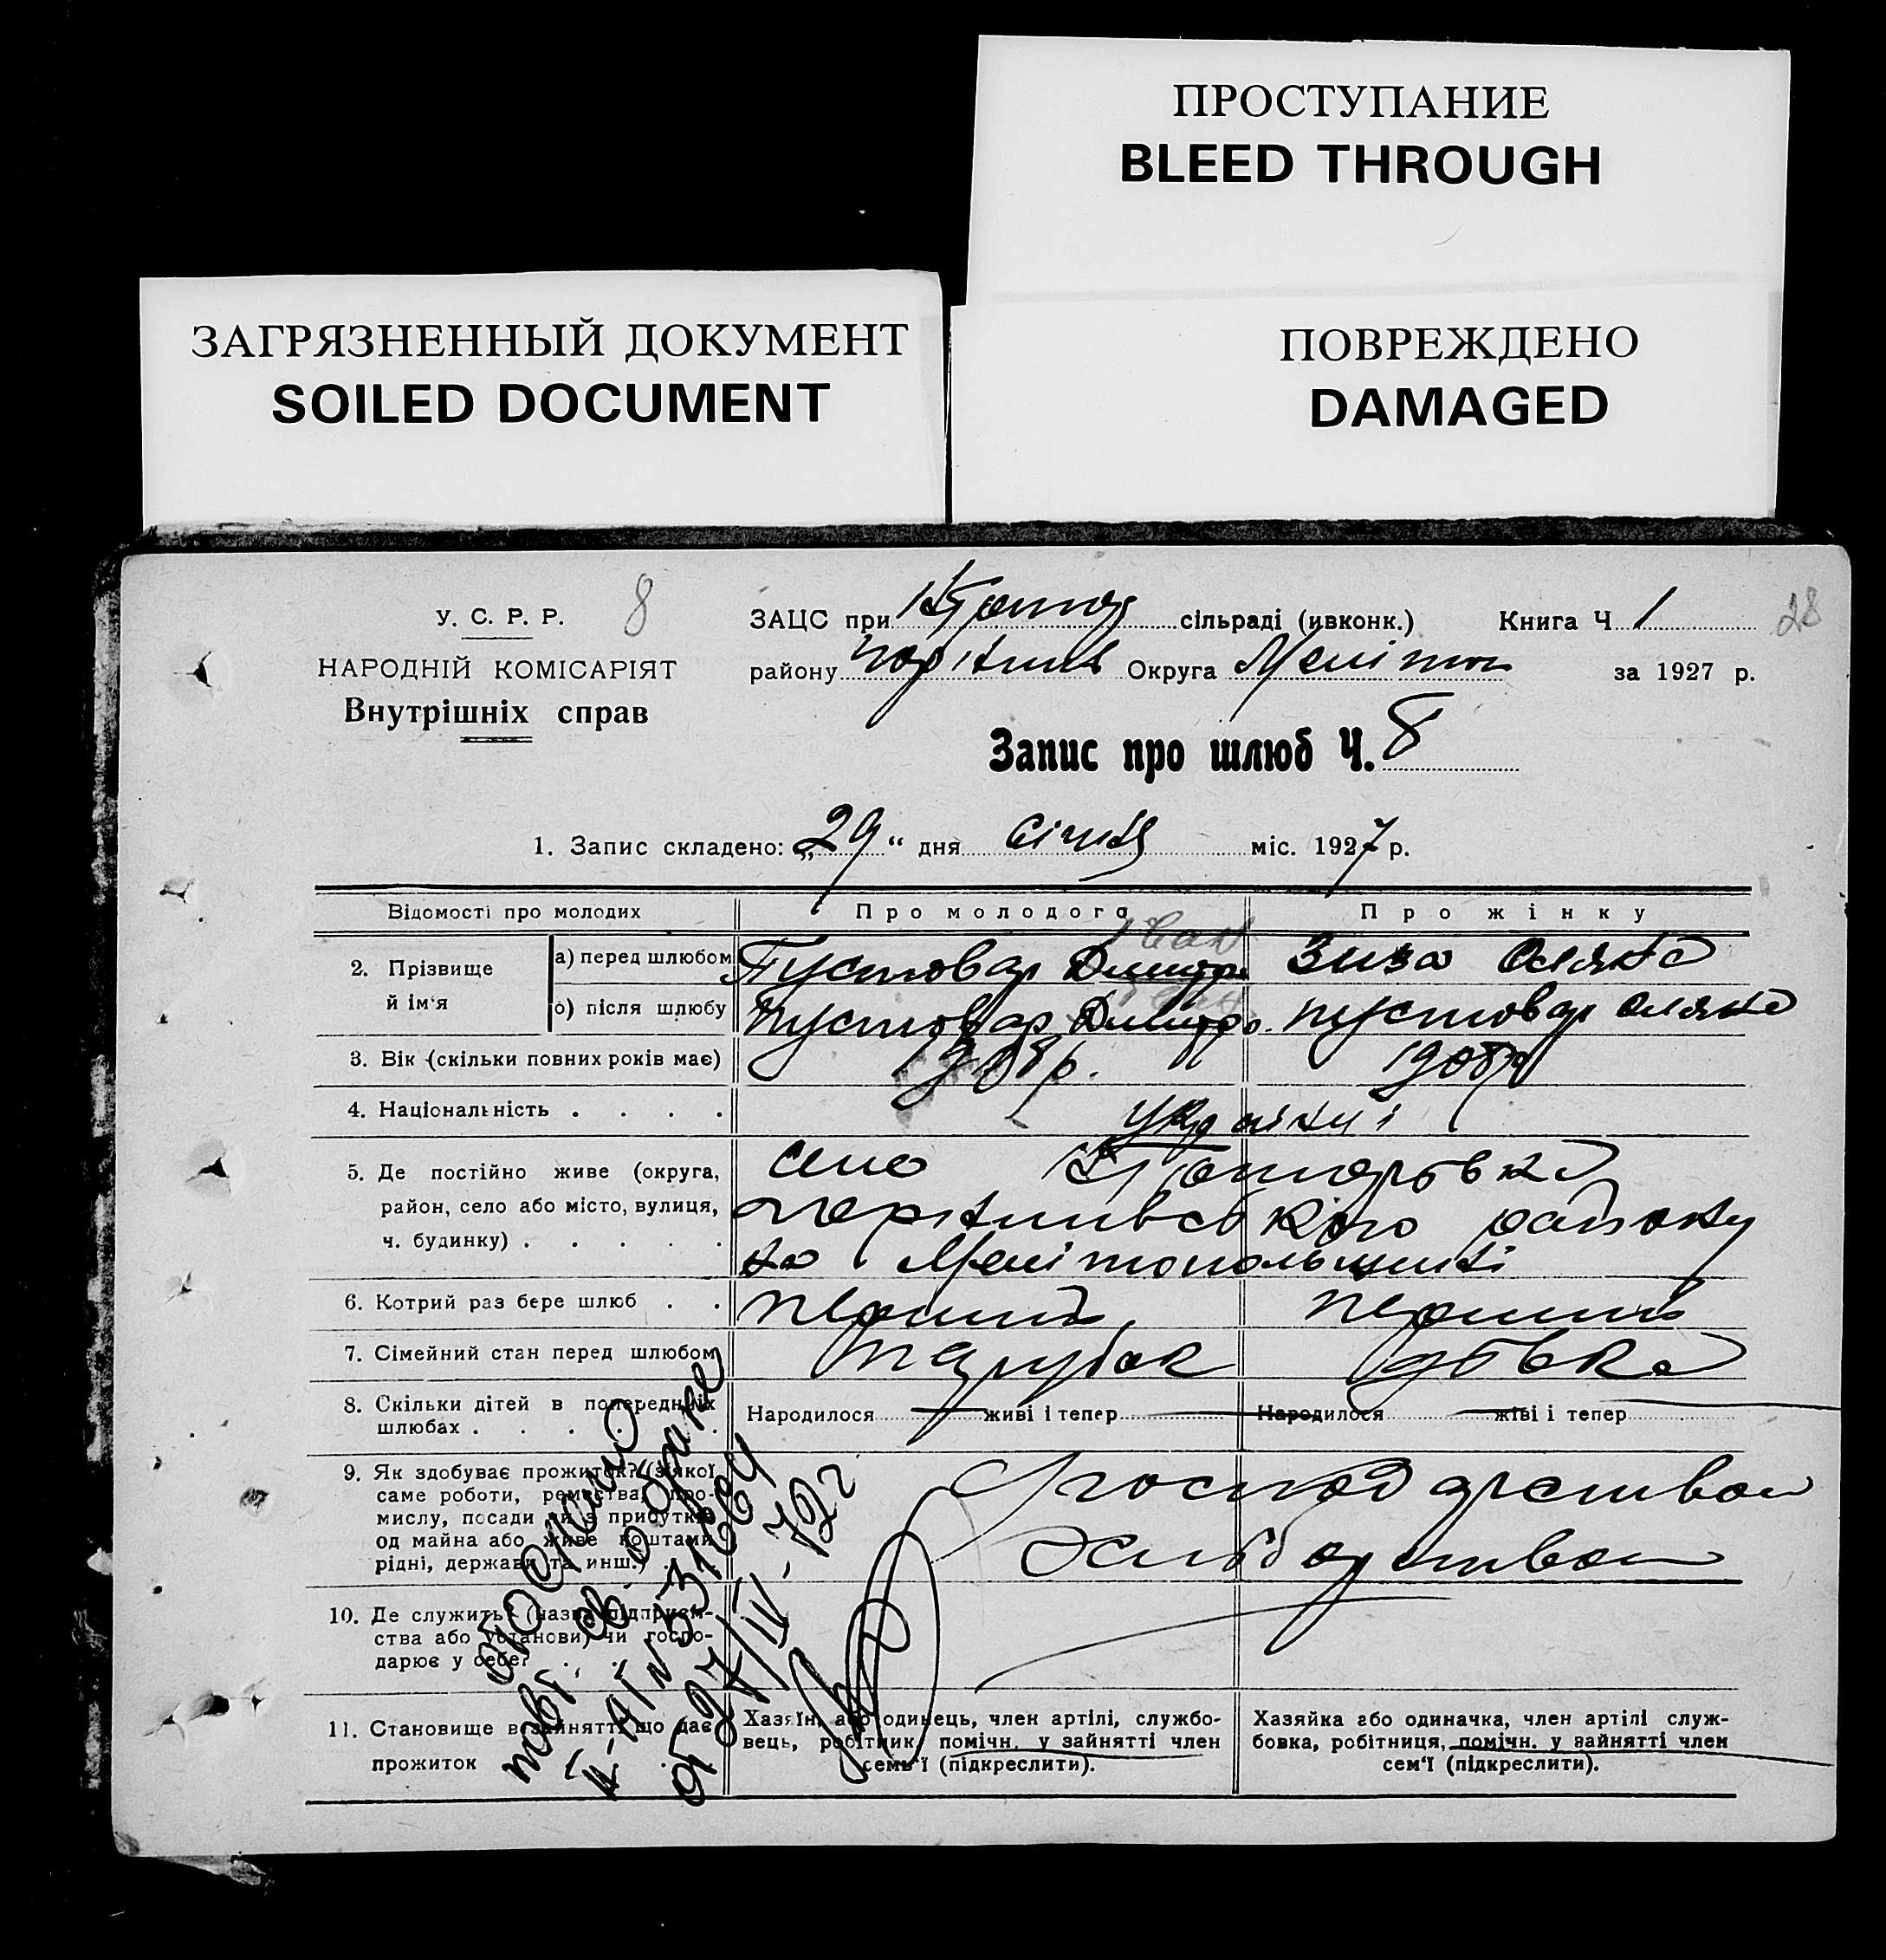 ПРОСТУПАНИЕ
BLEED THROUGH
ЗАГРЯЗНЕННЫЙ ДОКУМЕНТ
SOILED DOCUMENT
ПОВРЕЖДЕНО
DAMAGED
У. С. Р. Р. 8
НАРОДНІЙ КОМІСАРІЯТ
Внутрішніх справ
ЗАЦС при сільраді (ивконк.) Книга Ч 1 28
району Округа Мелітоп за 1927 р.
Запис про шлюб Ч. 8
1. Запис складено: „29“ дня січня міс. 1927 р.
Відомості про молодих Про молодого Про жінку
2. Прізвище й ім‘я
а) перед шлюбом Пустовар Дмитро Іван Зиза Оляна
б) після шлюбу Пустовар Дмитро Пустовар Оляна
3. Вік (скільки повних років має) 1908р. 1908р
4. Національність . . . . україн
5. Де постійно живе (округа, село
район, село або місто, вулиця, району
ч. будинку) . . . . . на Мелітопольщині
6. Котрий раз бере шлюб . . перший перший
7. Сімейний стан перед шлюбом парубок дівка
8. Скільки дітей в попередніх
шлюбах . . . . . .
Народилося живі і тепер Народилося живі і тепер
9. Як здобуває прожиток? (з якої
саме роботи, ремества, про-
мислу, посади чи з прибутків
од майна або живе коштами
рідні, держави та инш.) .
господарством
хліборобством
10. Де служить? (назва підприєм-
ства або установи) чи госпо-
дарює у себе? . . .
11. Становище в зайнятті, що дає
прожиток
Хазяїн, або одинець, член артілі, службо-
вець, робітник, помічн. у зайнятті член
семь‘ї (підкреслити).
Хазяйка або одиначка, член артілі служ-
бовка, робітниця, помічн. у зайнятті член
сем‘ї (підкреслити).
повт. св. о браке
от 27/IV-72г